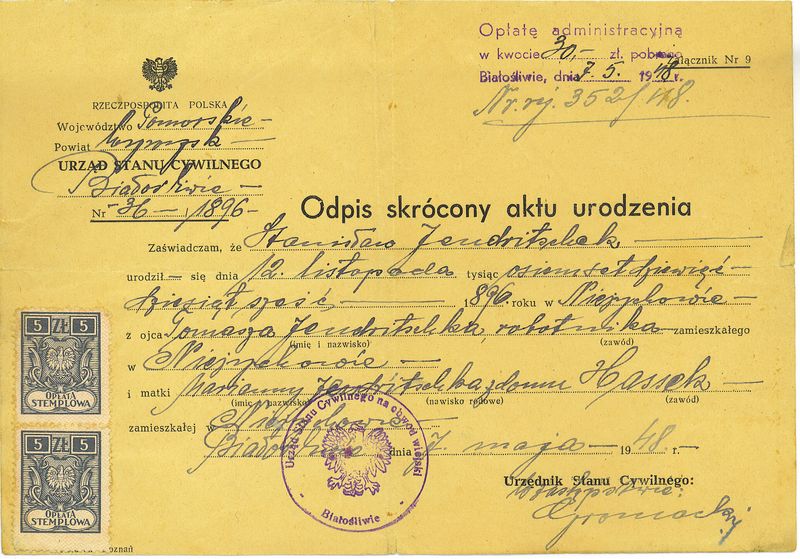 Opłatę administracyjną
w kwocie 30,- zł. pobrano
Załącznik Nr 9
Białośliwie, dnia 7. 5. 1948 r.
Nr. rej. 352/48.
RZECZPOSPOLITA POLSKA
Województwo Pomorskie -
Powiat Wyrzysk -
URZĄD STANU CYWILNEGO
Białośliwie -
Nr - 36 - / 1896 -
Odpis skrócony aktu urodzenia
Zaświadczam, że Stanisław Jendritschek
urodził - się dnia 12. listopada tysiąc osiemset dziewięć-
dziesiąt sześć - 1896. roku w Nieżychowie -
z ojca Tomasza Jendritschka, robotnika zamieszkałego
(imię i nazwisko) (zawód)
w Nieżychowie -
i matki Marianny Jendritschka z domu Hassek -
(imię i nazwisko) (nawisko rodowe) (zawód)
zamieszkałej w Nieżychowie -
Białośliwie dnia 7. maja - 1948 r. -
Urzędnik Stanu Cywilnego:
W zastępstwie:
5 ZŁ 5
OPŁATA
STEMPLOWA
5 ZŁ 5
OPŁATA
STEMPLOWA
Urząd Stanu Cywilnego na obwód wiejski
Białośliwie